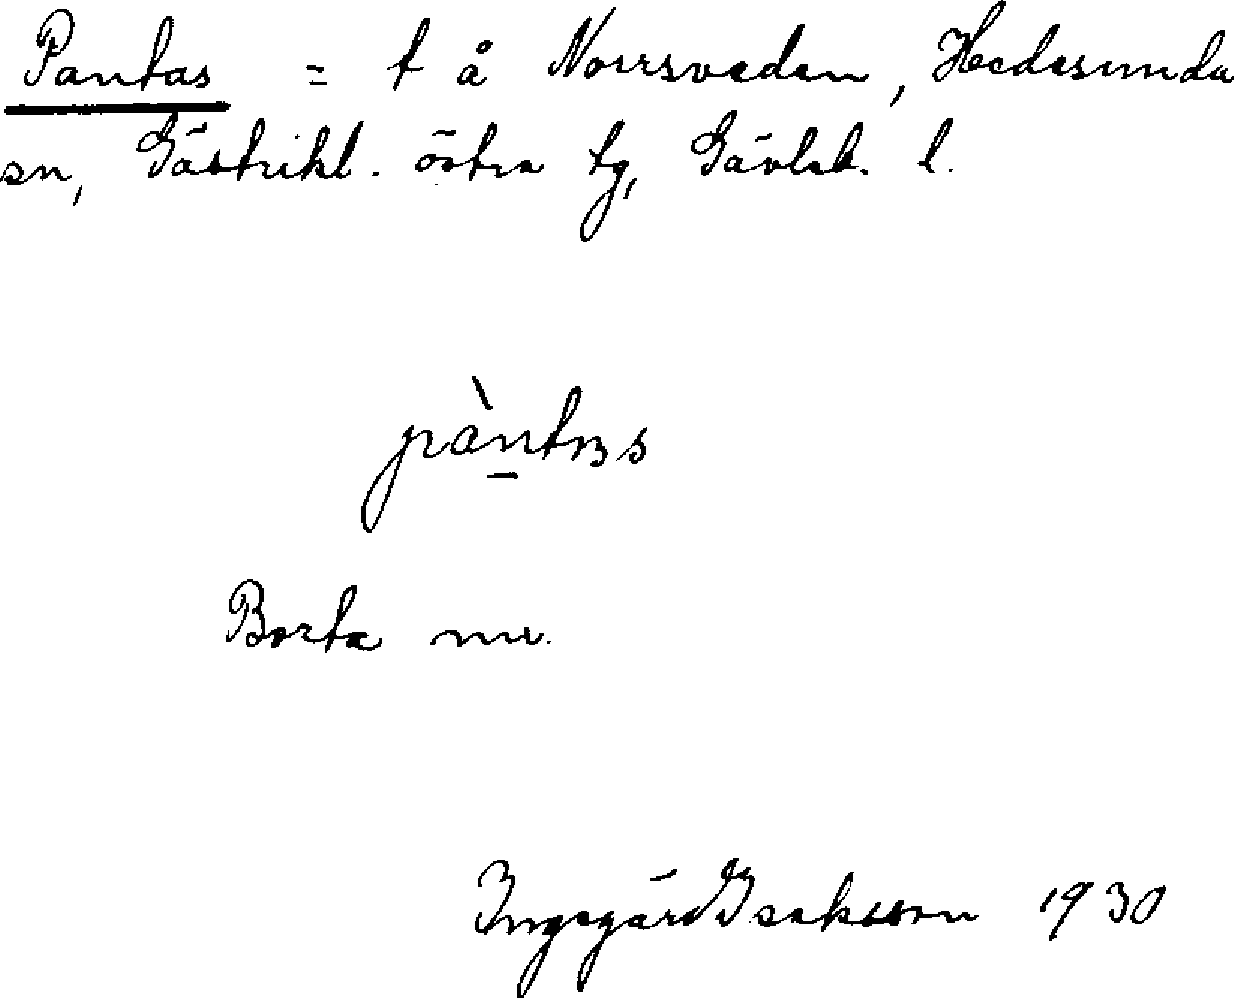 Pantas = t å Norrsveden, Hedesunda
sn, Gästrikl. östra tg, Gävleb. l.
pàn̠tɜs
Borta nu.
Ingegärd Isaksson 1930